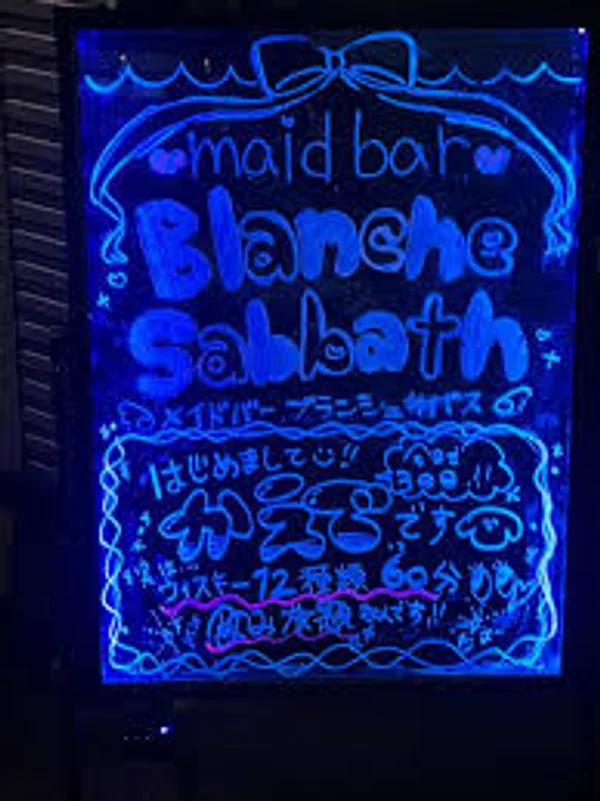 maid bar
Blanche
Sabbath
メイドバー ブランシュサバス
はじめまして!!
かえで です
ウィスキー12種類 60分
飲み放題 なんです!!